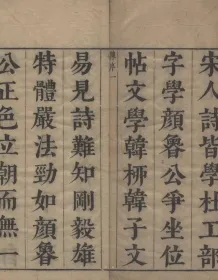 宋人詩皆學杜工部
字學顏魯公爭坐位
帖文學韓柳韓子文
序一
易見詩難知剛毅雄
特體嚴法勁如顏魯
公正色立朝而無一